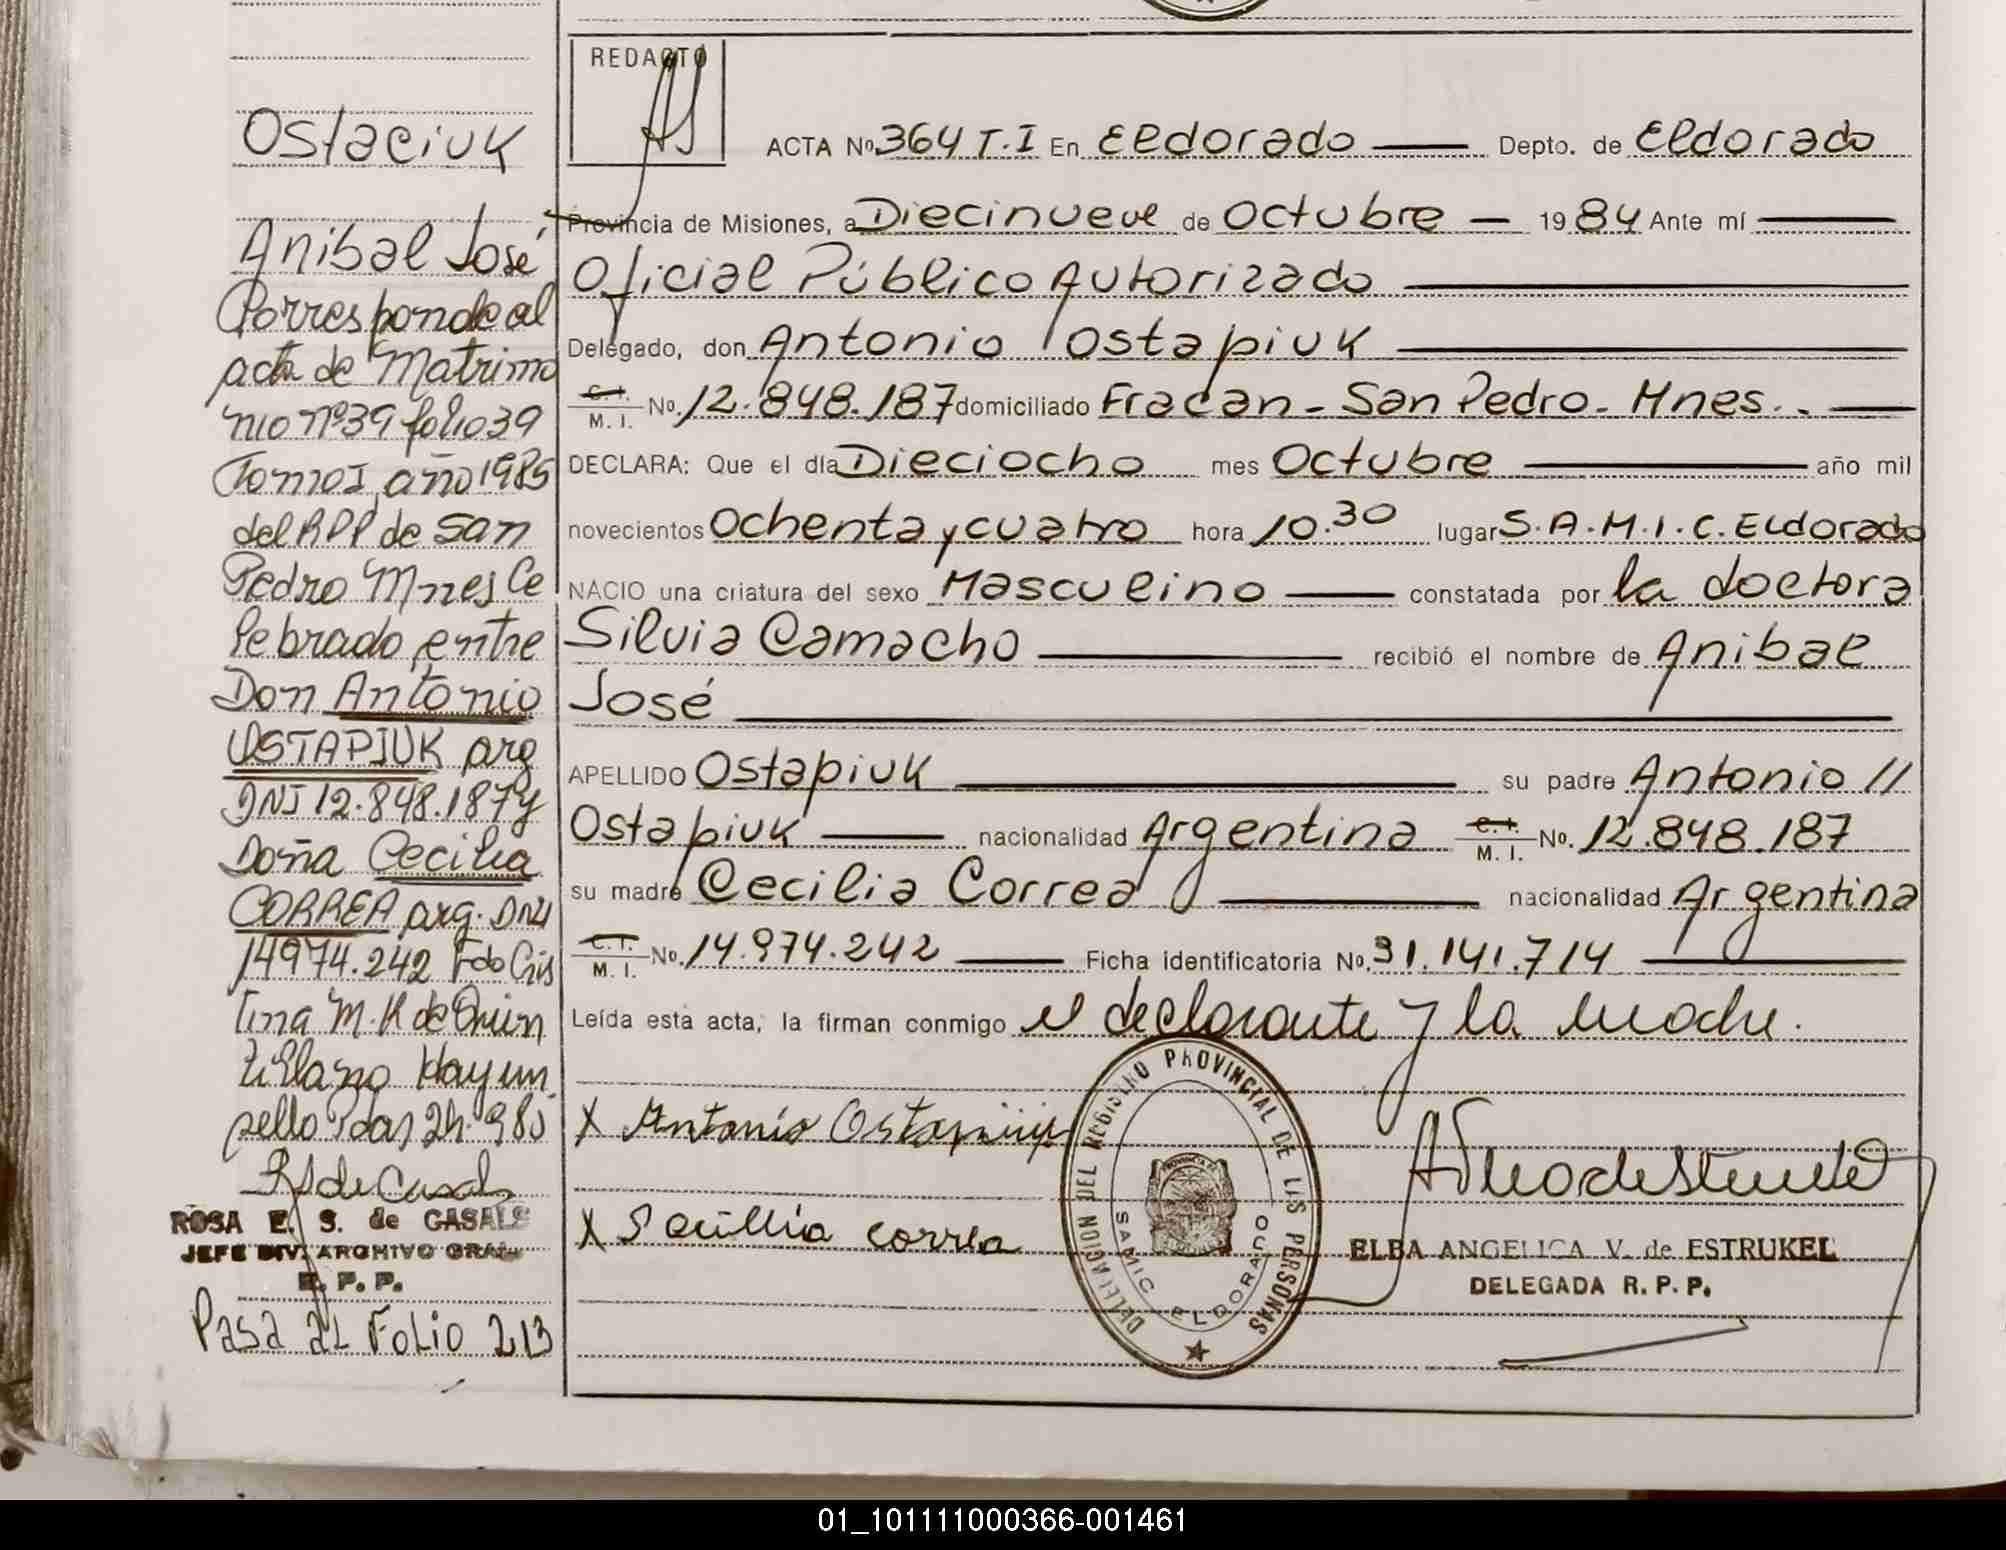 Ostaciuk
Anibal José
Corresponde al
acta de Matrimo
nio nº39 folio 39
Tomo I, año 1985
del RPP de San
Pedro Mnes Ce
lebrado entre
Don Antonio
OSTAPIUK arg
DNI 12.848.187 y
Doña Cecilia
CORREA arg. DNI
14974.242 Fdo Cris
tina M. K de Quin
tillano Hay un
sello Pdas 24. 985
RS de Casals
ROSA E. S. de CASALS
JEFE DIV. ARCHIVO GRAL
R. P. P.
Pasa al Folio 213
REDACTÓ
ACTA Nº 364 T.I En Eldorado Depto. de Eldorado
Provincia de Misiones, a Diecinueve de Octubre 1984 Ante mí
Oficial Público Autorizado
Delegado, don Antonio Ostapiuk
C. I.
M. I. No. 12.848.187 domiciliado Fracan - San Pedro - Mnes..
DECLARA: Que el día Dieciocho mes Octubre año mil
novecientos Ochenta y cuatro hora 10.30 lugar S.A.M.I.C. Eldorado
NACIO una criatura del sexo Masculino constatada por la doctora
Silvia Camacho recibió el nombre de Anibal
José
APELLIDO Ostapiuk su padre Antonio //
Ostapiuk nacionalidad Argentina C. I. M. I. No. 12.848.187
su madre Cecilia Correa nacionalidad Argentina
C. I.
M. I. No. 14.974.242 Ficha identificatoria No. 31.141.714
Leída esta acta, la firman conmigo el declarante y la madre.
X Antonio Ostapiuk
X Secillia correa
DELEGACION DEL REGISTRO PROVINCIAL DE LAS PERSONAS
SAMIC ELDORADO
ELBA ANGELICA V. de ESTRUKEL
DELEGADA R. P. P.
01_101111000366-001461